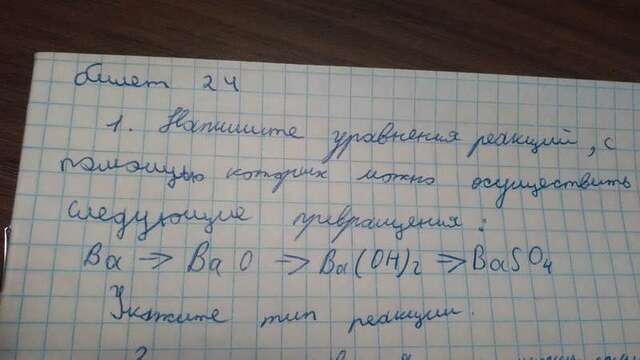 билет 24
1. Напишите уравнения реакций, с
помощью которых можно осуществить
следующие превращения:
Ba → BaO → Ba(OH)2 → BaSO4
Укажите тип реакции.
2